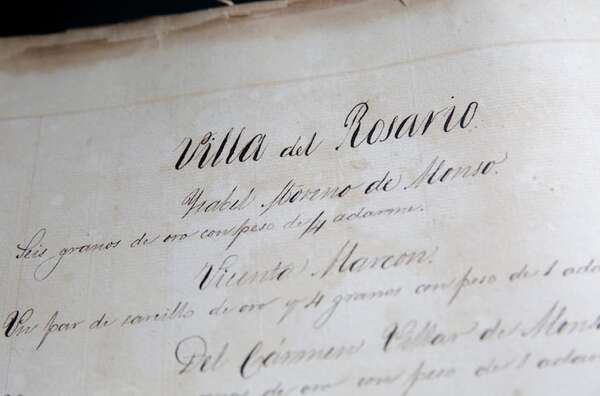 Villa del Rosario.
Ysabel Moreno de Monso.
Seis granos de oro con peso de 4 adarme.
Vicenta Marcon.
Un par de sarcillo de oro y 4 granos con peso de 1 ada
Del Cármen Villar de Mons
de oro con peso de 1 adarm